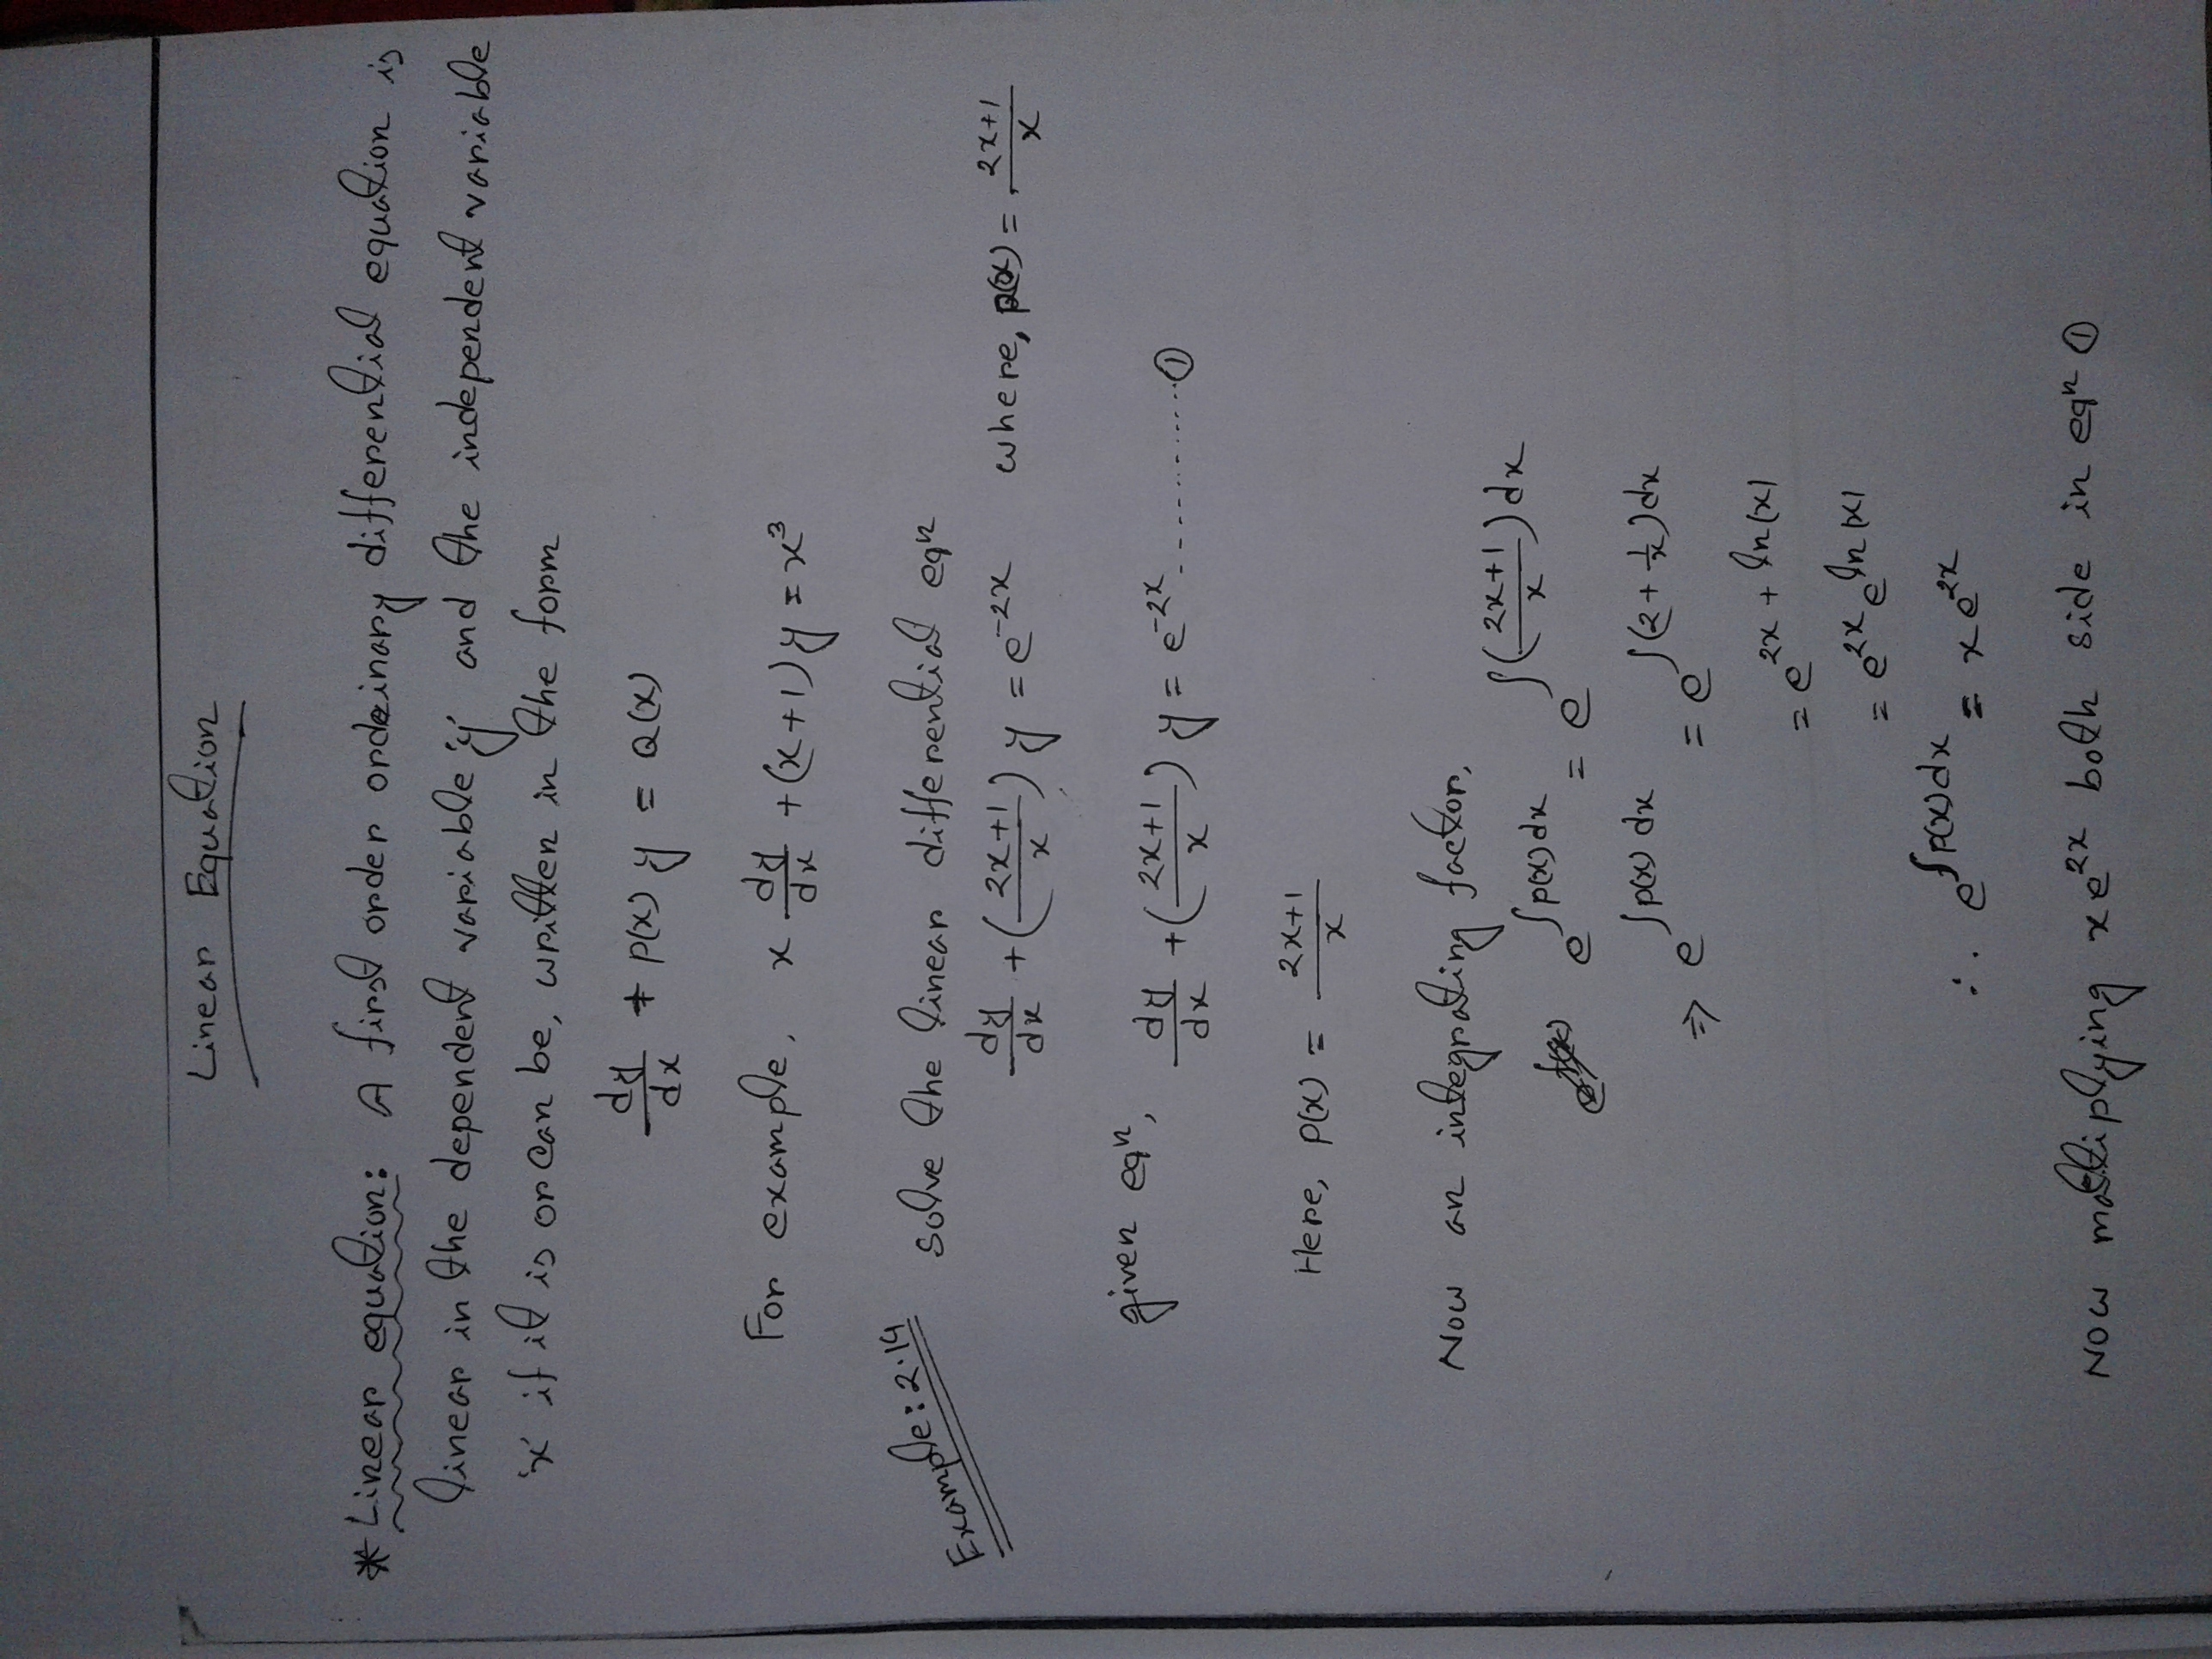 Linear Equation
* Linear equation: A first order ordeinary differential equation is
linear in the dependent variable 'y' and the independent variable
'x' if it is or can be, written in the form
dy/dx + P(x) y = Q(x)
For example, x dy/dx + (x+1) y = x³
Example: 2.14 Solve the linear differential eqⁿ
dy/dx + ((2x+1)/x) y = e^(-2x) where, P(x) = (2x+1)/x
given eqⁿ, dy/dx + ((2x+1)/x) y = e^(-2x) ............ ①
Here, P(x) = (2x+1)/x
Now an integrating factor,
e^(∫P(x)dx) = e^(∫((2x+1)/x)dx)
⇒ e^(∫P(x) dx) = e^(∫(2 + 1/x)dx)
= e^(2x + ln|x|)
= e^(2x) e^(ln|x|)
∴ e^(∫P(x)dx) = x e^(2x)
Now multiplying x e^(2x) both side in eqⁿ ①